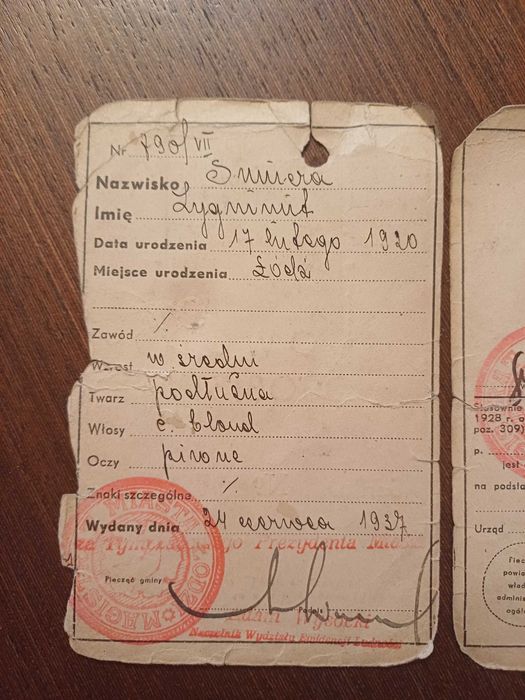 Nr 790/VII
Nazwisko Smiera
Imię Zygmunt
Data urodzenia 17 lutego 1920
Miejsce urodzenia Łódź
Zawód %
Wzrost w średni
Twarz podłużna
Włosy c. blond
Oczy piwne
Znaki szczególne %
Wydany dnia 24 czerwca 1937
Prezydenta
Pieczęć gminy
Podpis
Wysocki
Naczelnik Wydziału Ewidencji Ludności
1928 r.
poz. 309)
p.
jest
na podsta
Urząd
Piec
powia
wład
admini
ogól